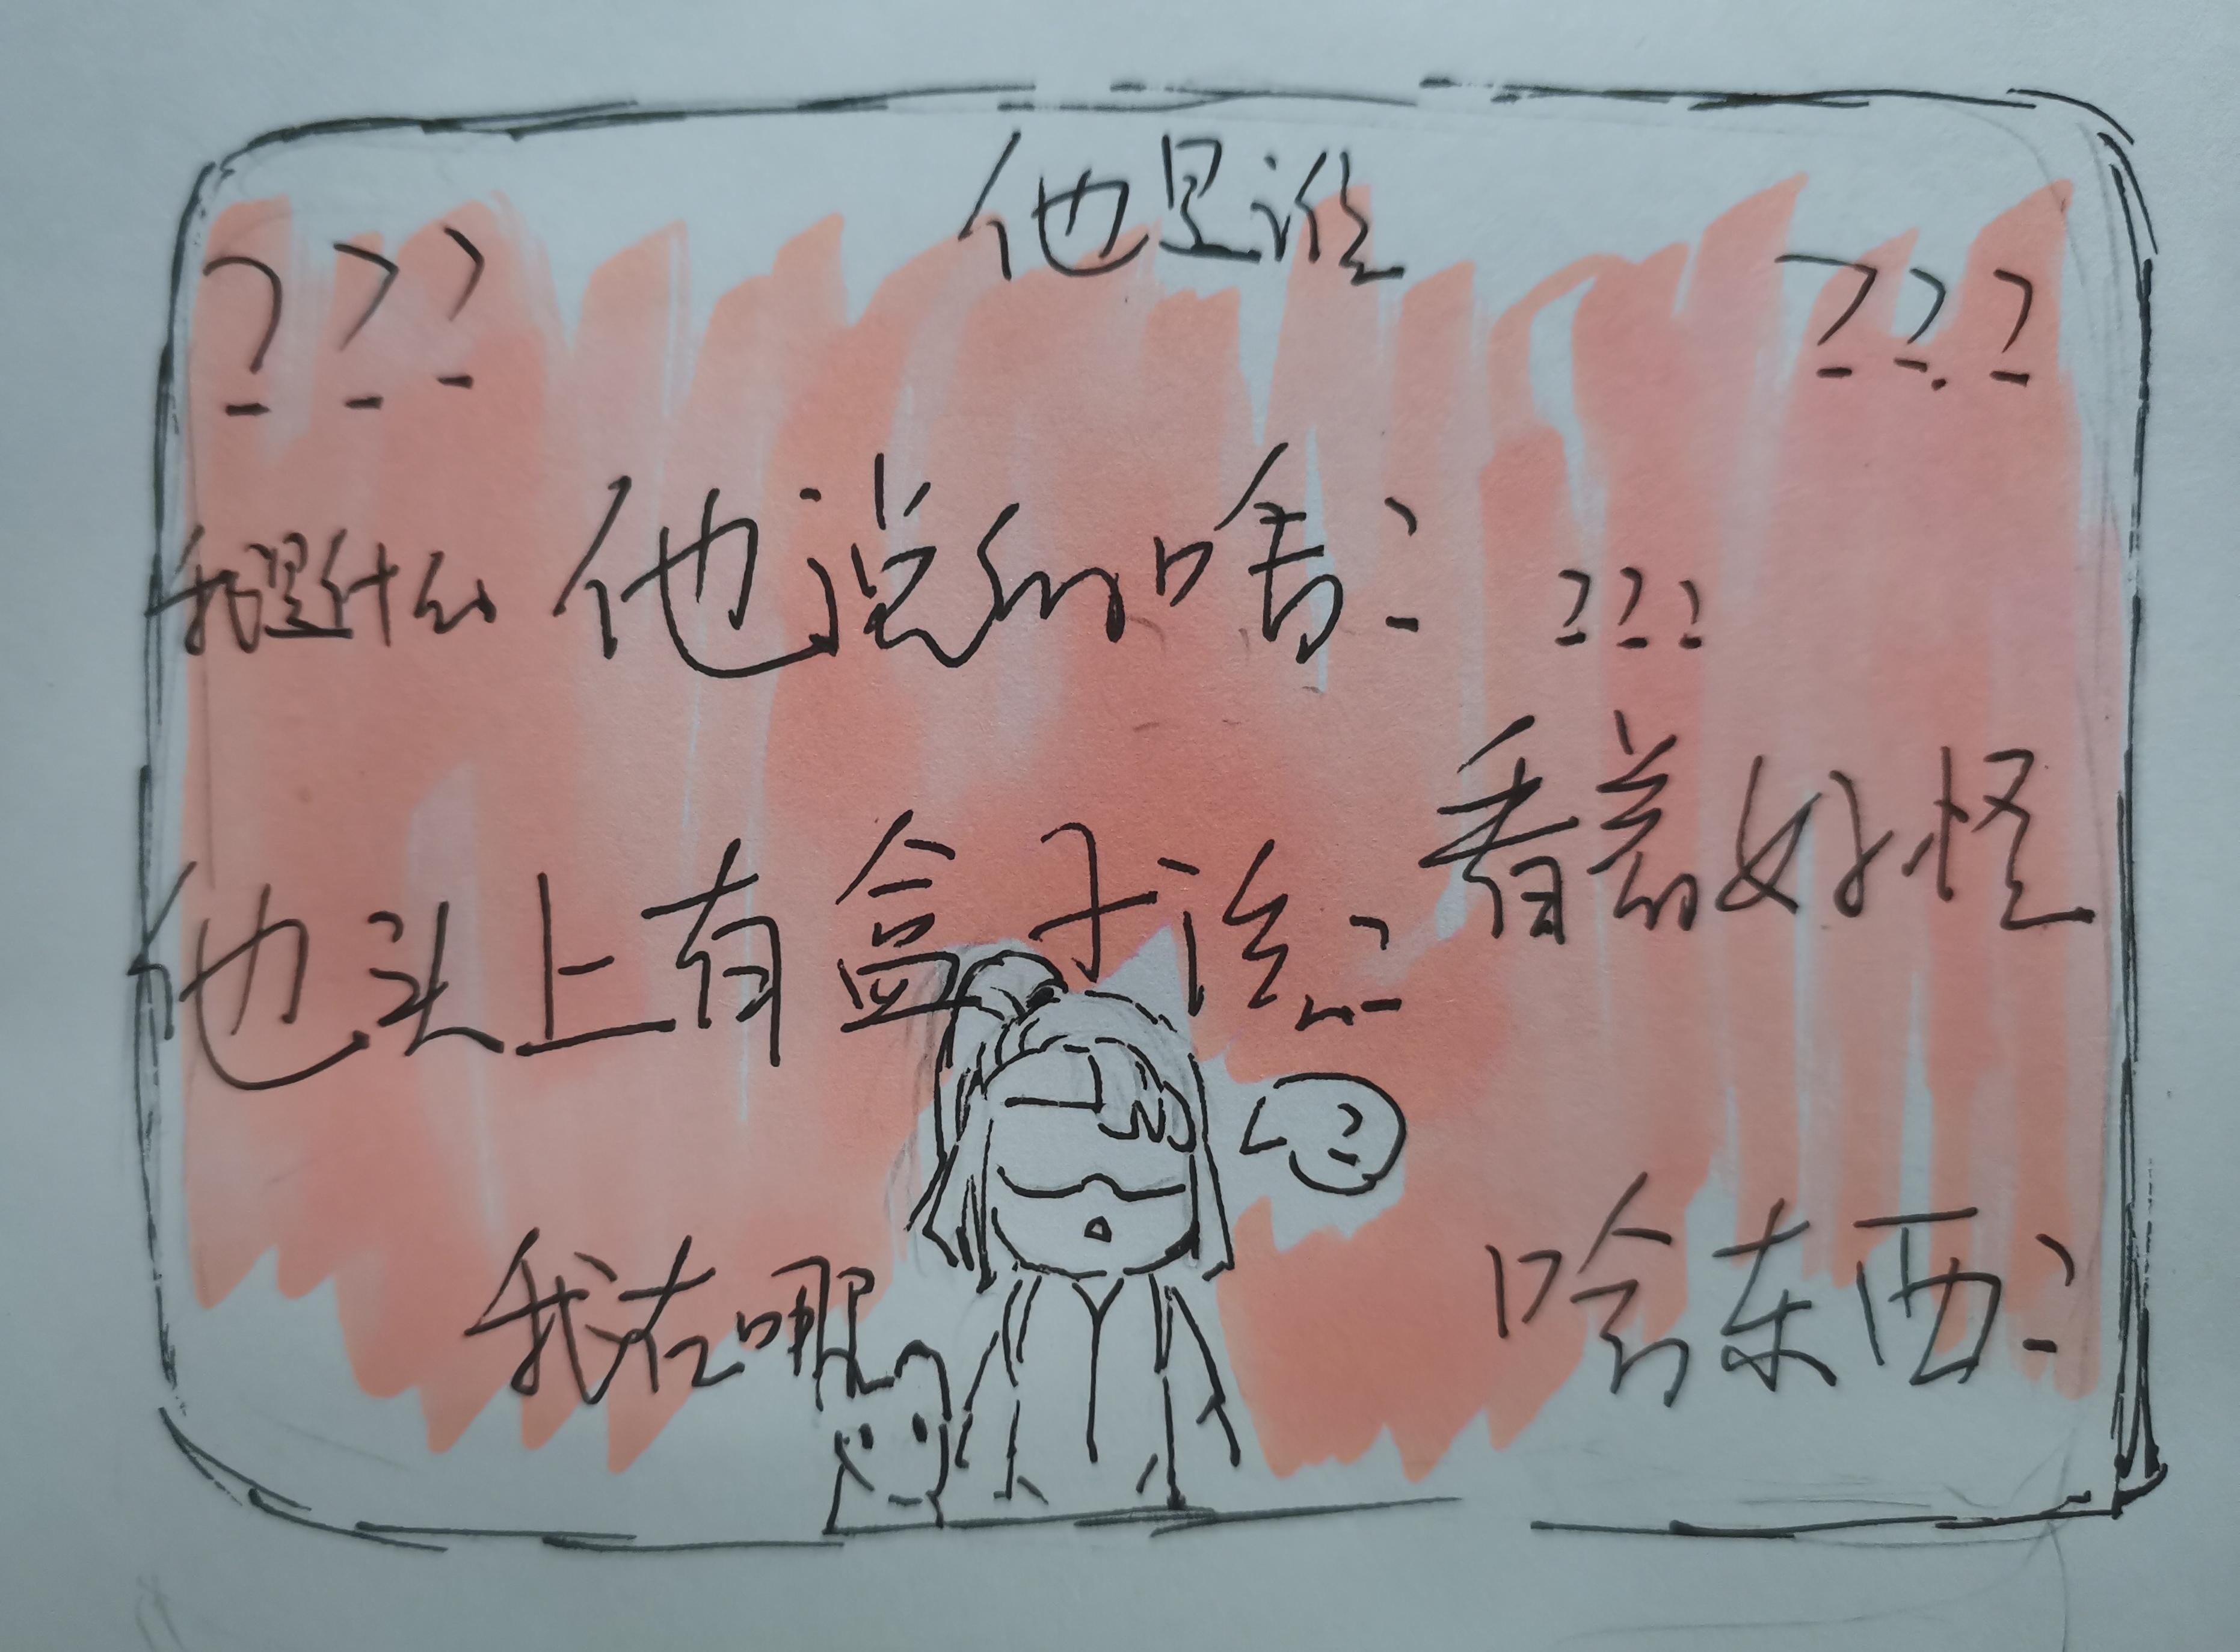 他是谁
???
???
我是什么
他说的啥?
???
看着好怪
他头上有盒子诶?
?
我在哪
啥东西?